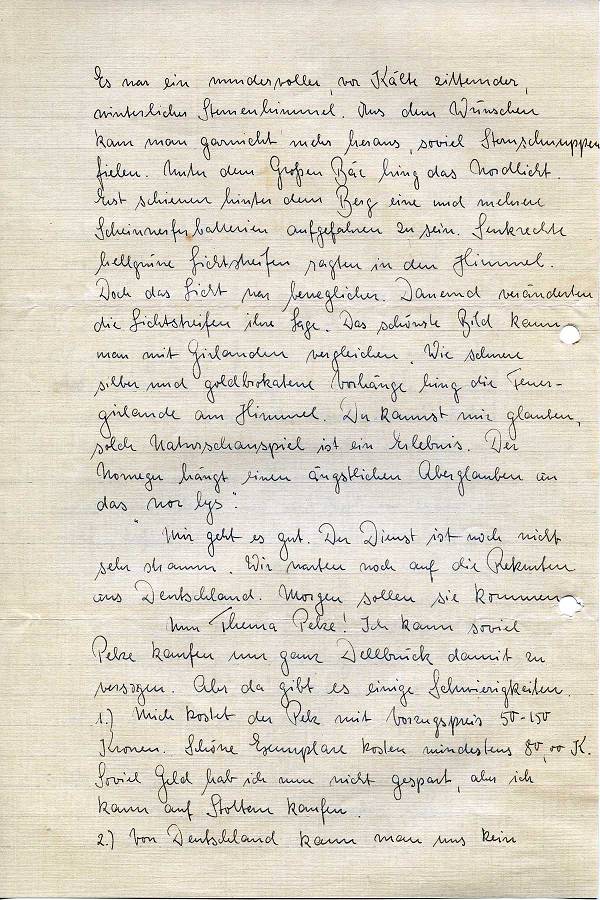 Es war ein wundervoller, vor Kälte zitternder,
winterlicher Sternenhimmel. Aus dem Wünschen
kam man garnicht mehr heraus, soviel Sternschnuppen
fielen. Unter dem Großen Bär hing das Nordlicht.
Erst schienen hinter dem Berg eine und mehrere
Scheinwerferbatterien aufgefahren zu sein. Senkrechte
hellgrüne Lichtstreifen ragten in den Himmel.
Doch das Licht war beweglicher. Dauernd veränderten
die Lichtstreifen ihre Lage. Das schönste Bild kann
man mit Girlanden vergleichen. Wie schwere
silber und goldbrokatene Vorhänge hing die Feuer-
girlande am Himmel. Du kannst mir glauben,
solch Naturschauspiel ist ein Erlebnis. Der
Norweger hängt einen ängstlichen Aberglauben an
das "nor lys".
Mir geht es gut. Der Dienst ist noch nicht
sehr stramm. Wir warten noch auf die Rekruten
aus Deutschland. Morgen sollen sie kommen.
Nun Thema Pelze! Ich kann soviel
Pelze kaufen um ganz Dellbrück damit zu
versorgen. Aber da gibt es einige Schwierigkeiten.
1.) Mich kostet der Pelz mit Vorzugspreis 50-150
Kronen. Schöne Exemplare kosten mindestens 80,00 K.
Soviel Geld hab ich nun nicht gespart, aber ich
kann auf Stottern kaufen.
2.) Von Deutschland kann man uns kein